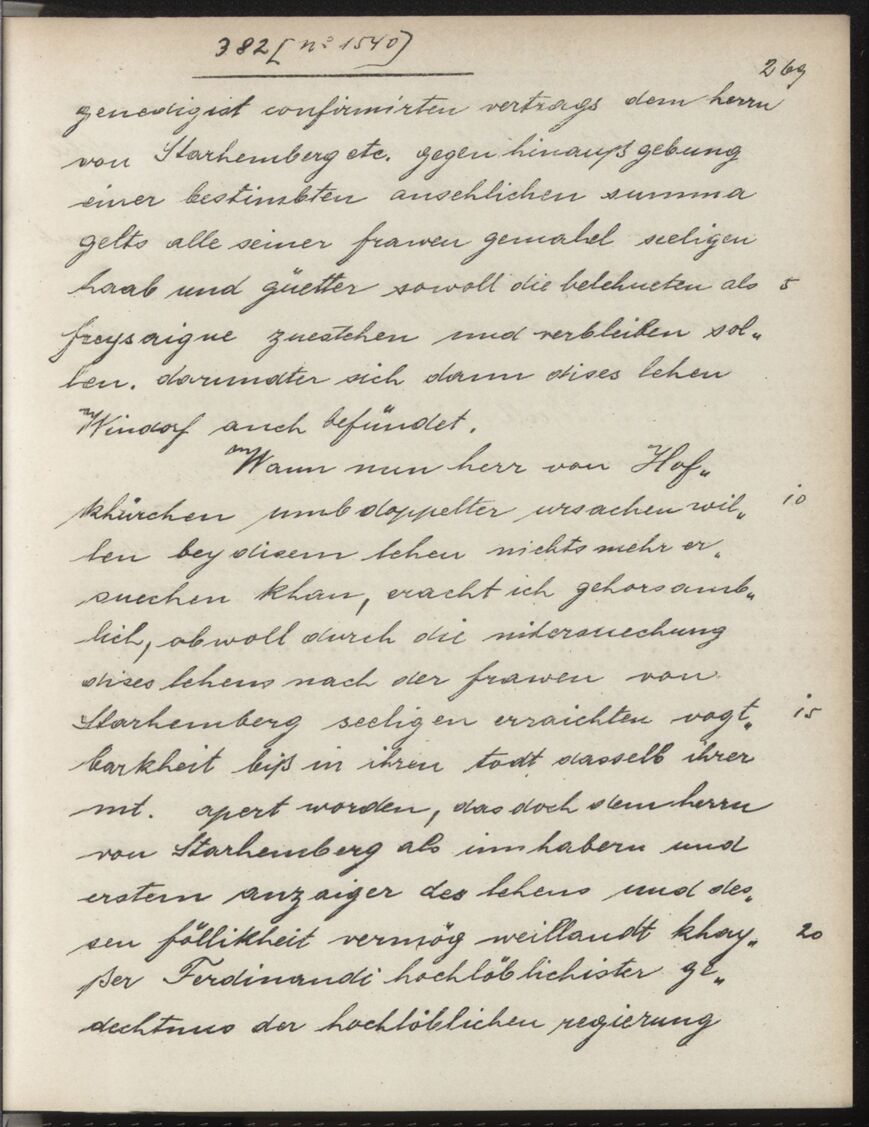 382 [nº 1540]
269
genedigist confirmirten vertrags dem herrn
von Starhemberg etc. gegen hinaußgebung
einer bestimbten ansehlichen summa
gelts alle seiner frawen gemahel seeligen
haab und güetter sowoll die belehneten als 5
freysaigne zuestehen und verbleiben sol„
len. darundter sich dann dises lehen
Windorf auch befündet.
Wann nun herr von Hof„
khürchen umb doppelter ursachen wil„ 10
len bey disem lehen nichts mehr er„
suechen khan, eracht ich gehorsamb„
lich, obwoll durch die nitersuechung
dises lehens nach der frawen von
Starhemberg seeligen erraichten vogt„ 15
barkheit biß in ihren todt dasselb ihrer
mt. apert worden, das doch dem herrn
von Starhemberg als innhabern und
erstem anzaiger des lehens und des„
sen fölligkheit vermög weillandt khay„ 20
ßer Ferdinandi hochlöblichister ge„
dechtnus der hochlöblichen regierung